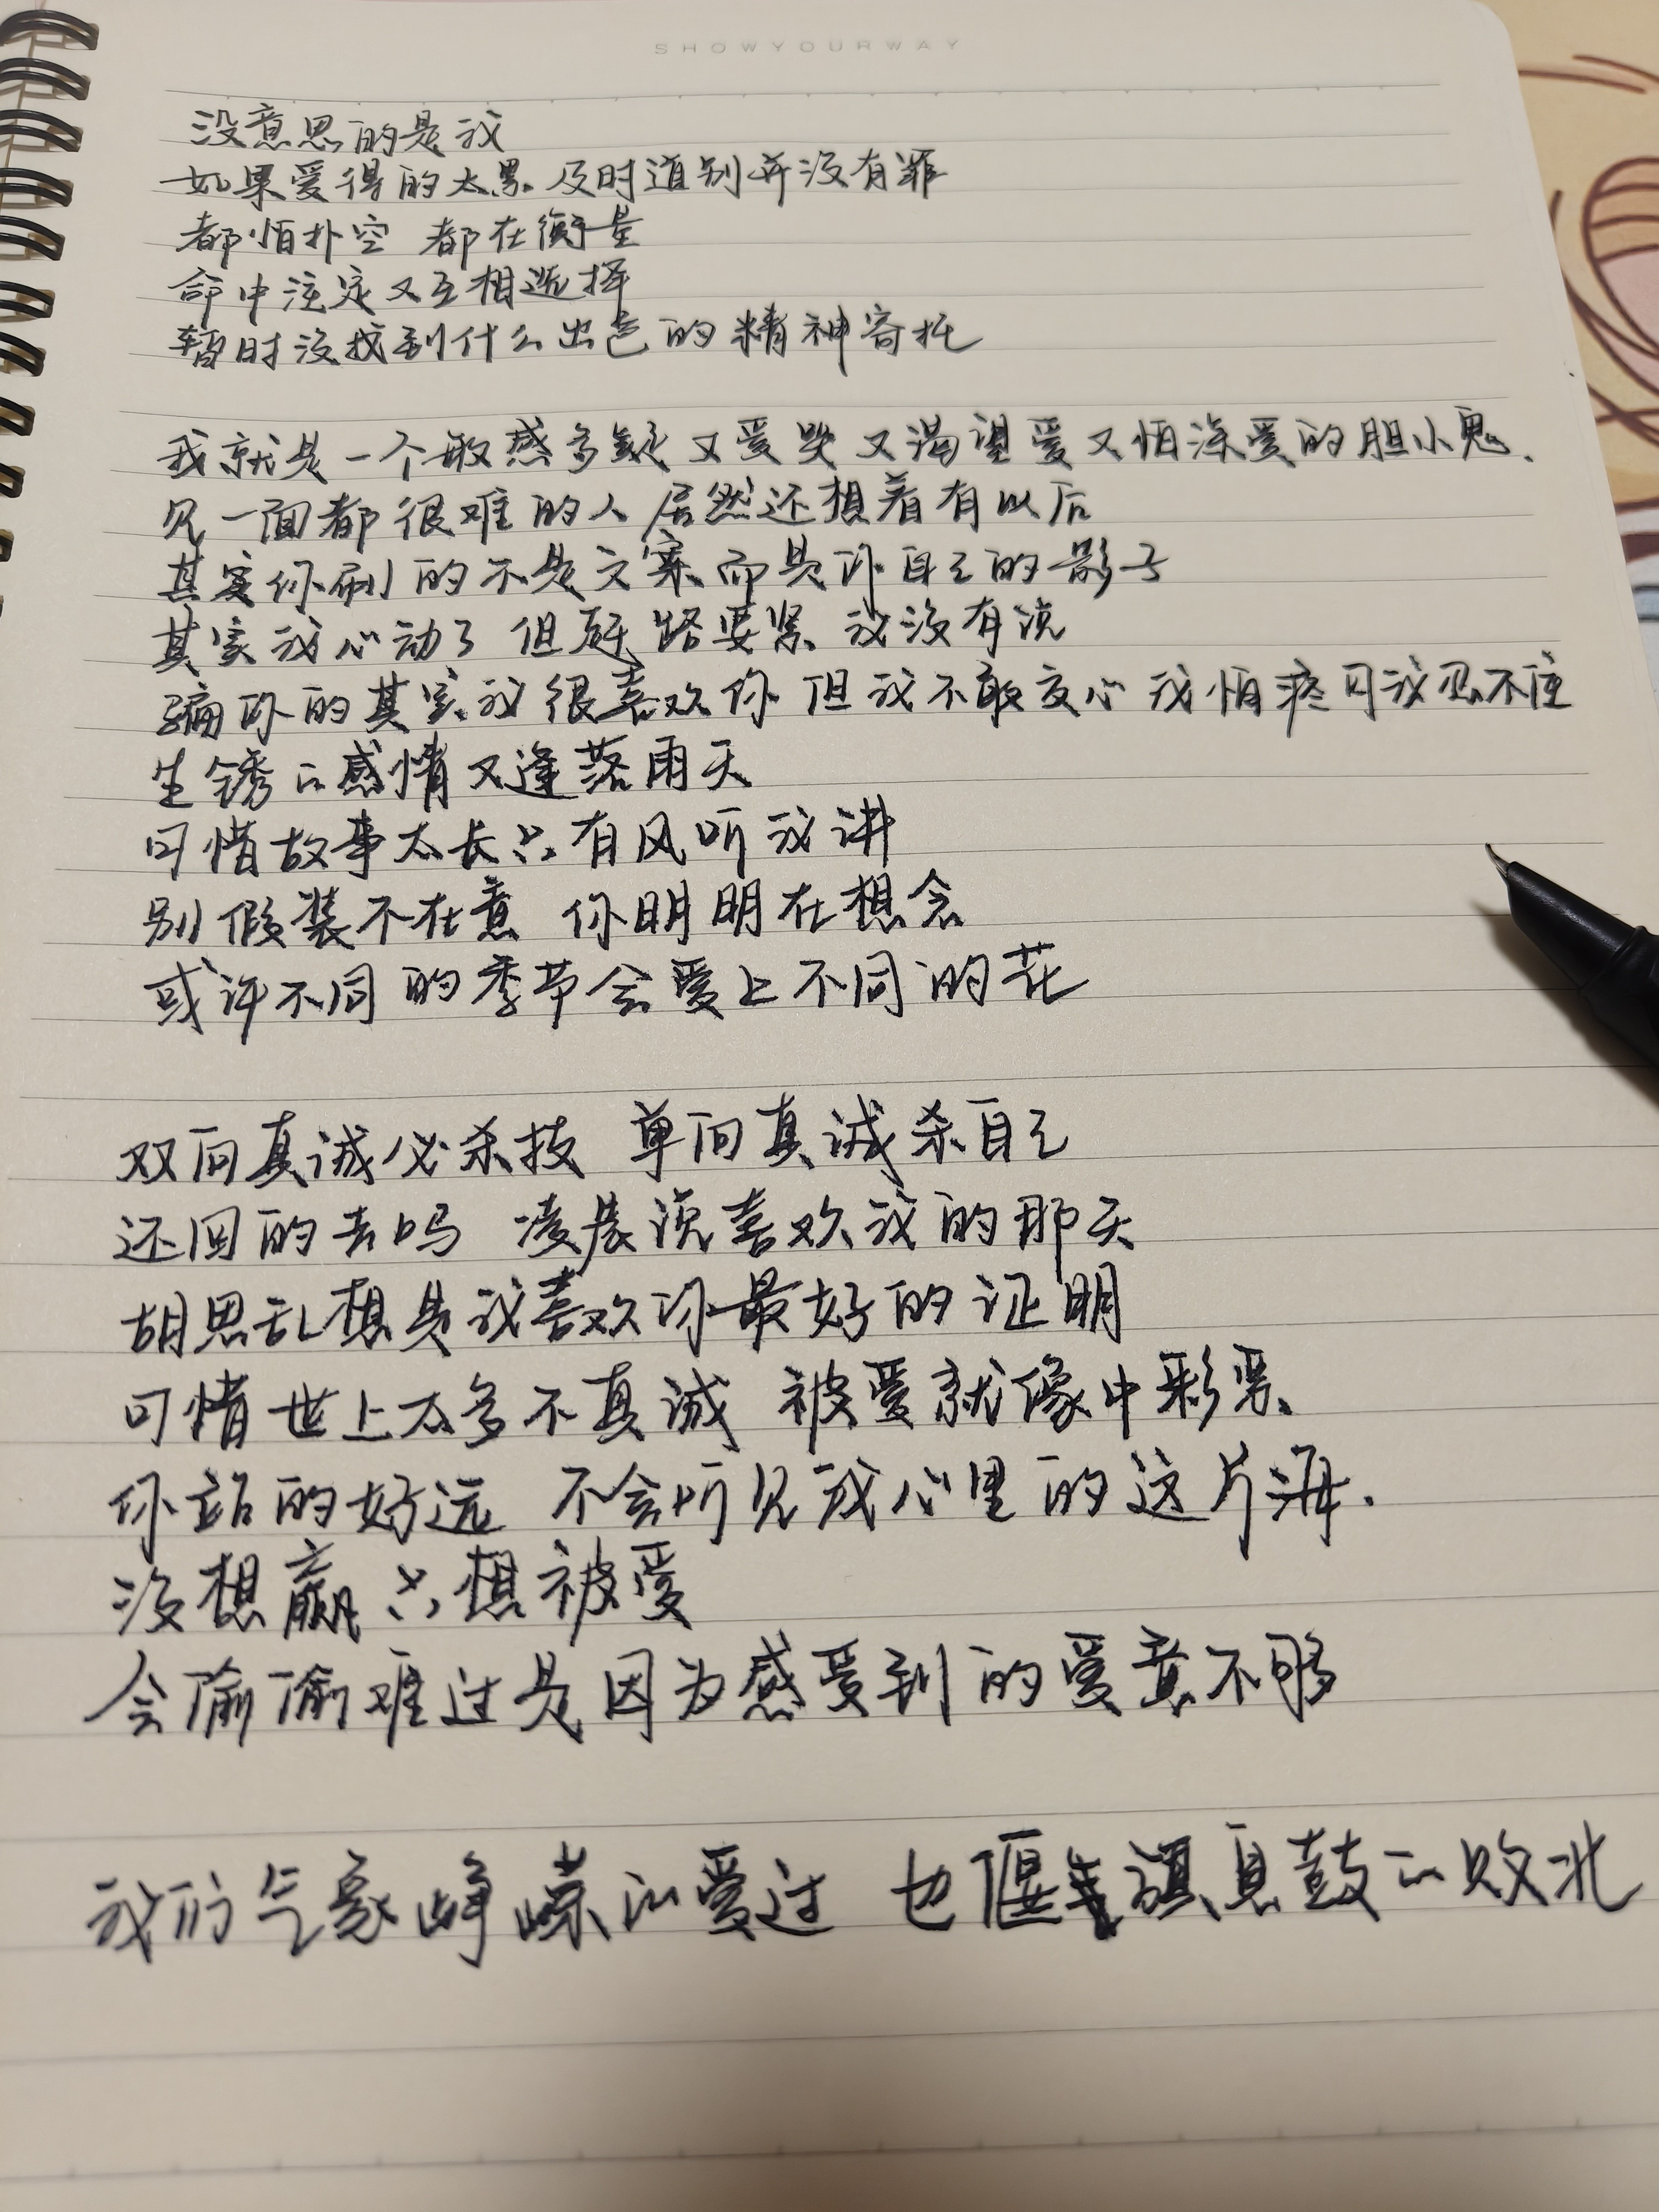 SHOWYOURWAY
没意思的是我
如果爱得的太累 及时道别并没有罪
都怕扑空 都在衡量
命中注定又互相选择
暂时没找到什么出色的精神寄托
我就是一个敏感多疑又爱哭又渴望爱又怕深爱的胆小鬼、
见一面都很难的人居然还想着有以后
其实你刷的不是文案而是你自己的影子
其实我心动了 但赶路要紧 我没有说
骗你的其实我很喜欢你 但我不敢交心 我怕疼可我忍不住
生锈的感情又逢落雨天
可惜故事太长只有风听我讲
别假装不在意 你明明在想念
或许不同的季节会爱上不同的花
双向真诚必杀技 单向真诚杀自己
还回的去吗 凌晨说喜欢我的那天
胡思乱想是我喜欢你最好的证明
可惜世上太多不真诚 被爱就像中彩票
你站的好远 不会听见我心里的这片海.
没想赢只想被爱
会偷偷难过是因为感受到的爱意不够
我们气豪峥嵘的爱过 也偃旗息鼓的败北